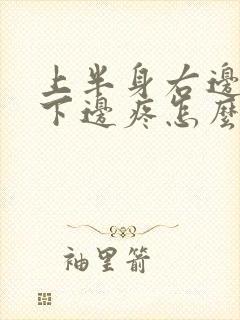 上半身右邊
下邊疼怎麼
袖里箭